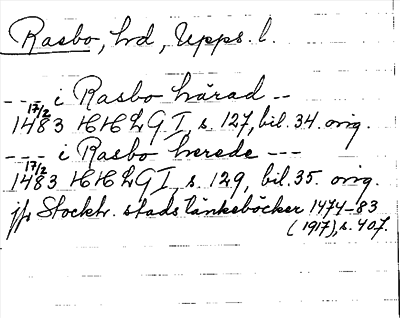 Rasbo, hd, Upps. l.
--- i Rasbo hårad --
17/2
1483 HHLGI, s. 127, bil. 34. orig.
--- i Rasbo herede ---
17/2
1483 HHLGI, s. 129, bil. 35. orig.
jfr Stockh. stads tänkeböcker 1474-83
(1917), s. 407.